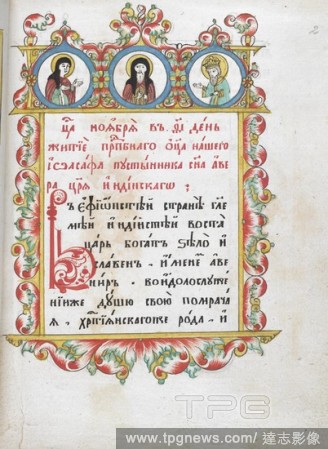 2
мⷭ҇ца ноѧбрѧ въ, ѳ҃і день
житїѐ прпⷣбнаго ѻц҃а нашего
іѡасафа пустынника сн҃а аве
ра царѧ индїискагѡ ;
Въ еѳїѡпстѣй странѣ гле
мѣй индїистѣй воста
царь богатъ ѕѣло и
славенъ, именемъ аве
ниръ, воидолослуже
нїиже душю свою помрача
ѧ, хрⷭ҇тїѧнскагоже рода, и
TPG
www.tpgnews.com/ 達志影像